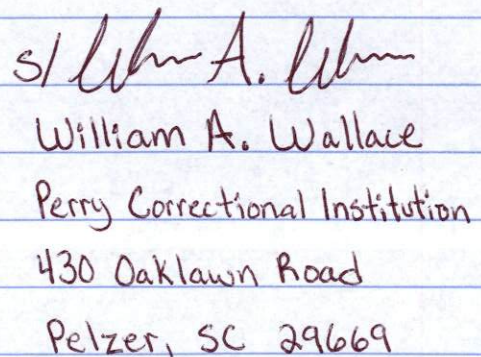 s/ William A. Wallace
William A. Wallace
Perry Correctional Institution
430 Oaklawn Road
Pelzer, SC 29669